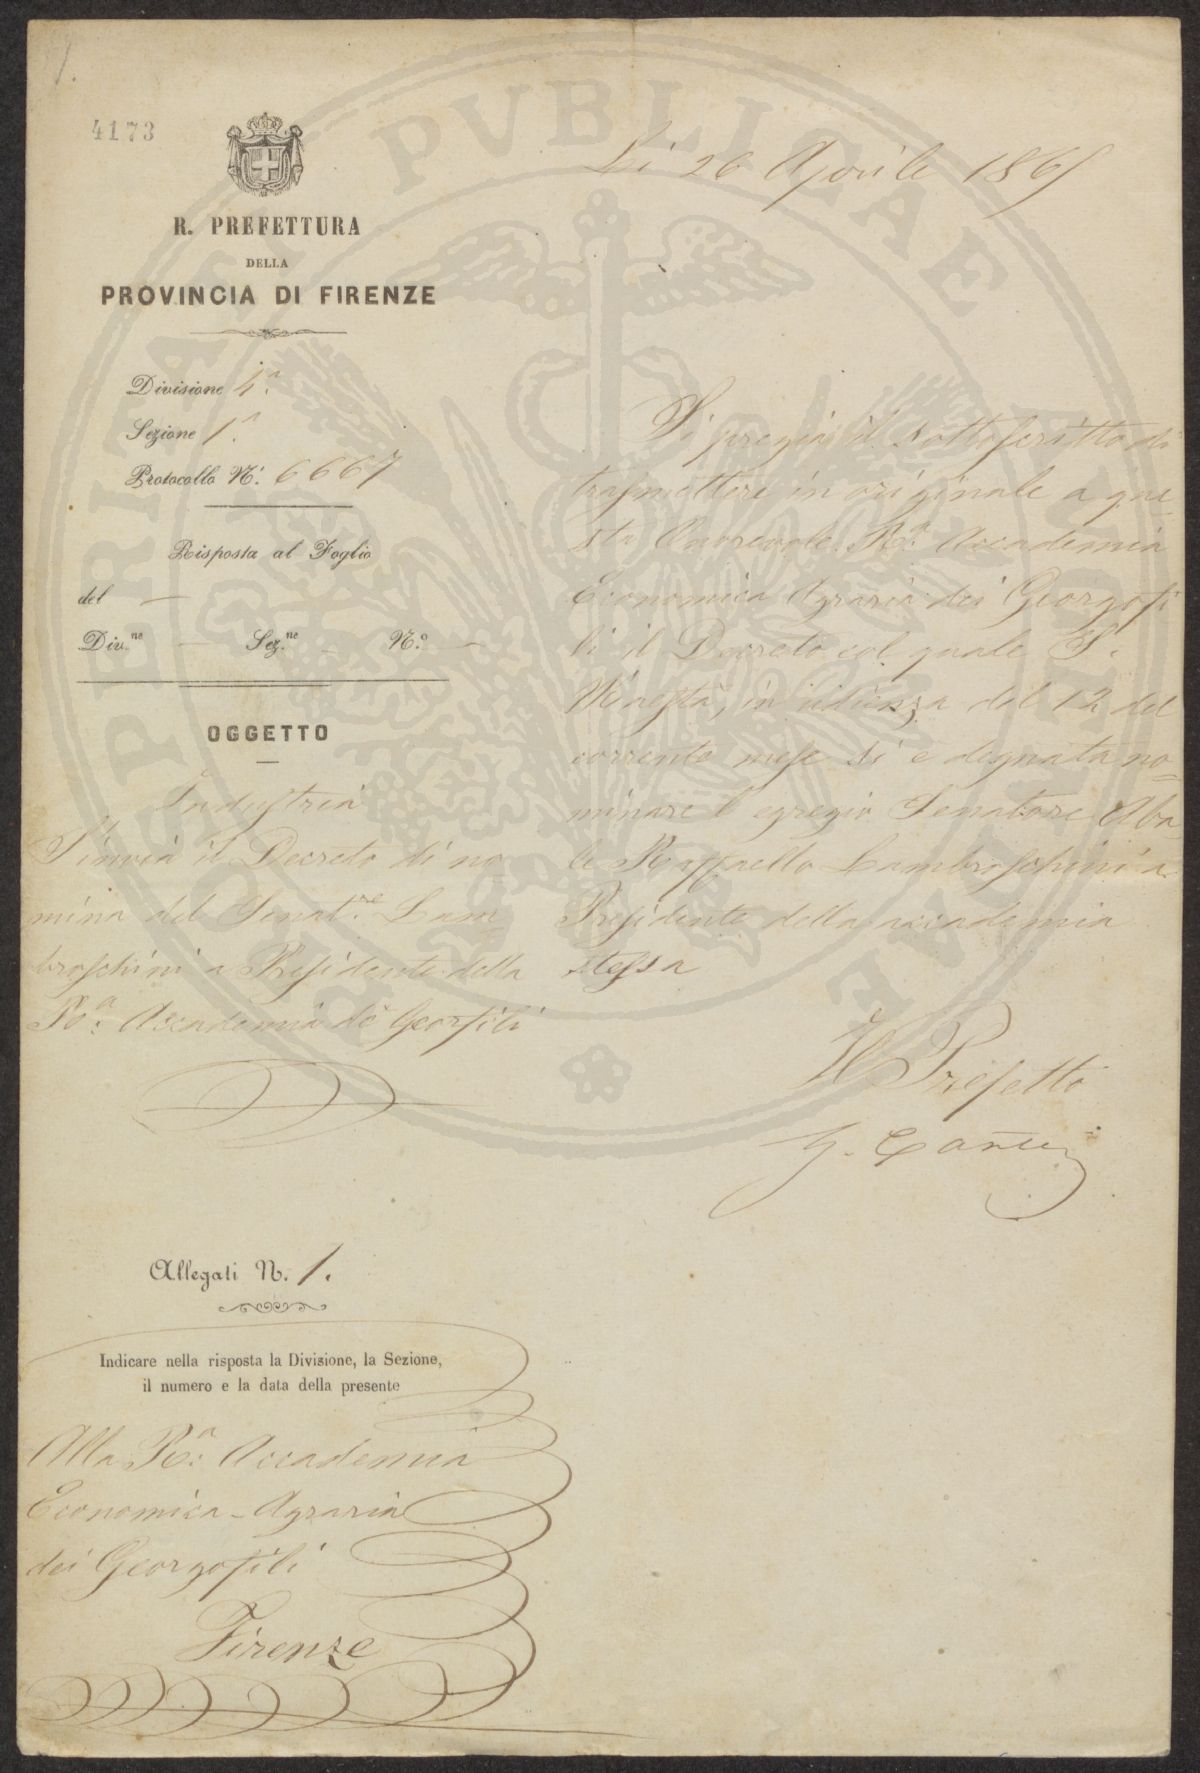 4173
R. PREFETTURA
DELLA
PROVINCIA DI FIRENZE
Divisione 4ª.
Sezione 1ª.
Protocollo N.º 6667
Risposta al Foglio
del —
Div.ne — Sez.ne — N.º —
OGGETTO
Industria
S'invia il Decreto di no-
mina del Senat.re Lam
bruschini a Presidente della
R.ª Accademia de Georfili
Allegati N. 1.
Indicare nella risposta la Divisione, la Sezione,
il numero e la data della presente
Alla R.ª Accademia
Economica-Agraria
dei Georgofili
Firenze
Li 26 Aprile 1865
Si pregia il sottoscritto di
trasmettere in originale a que-
sta Onorevole R.ª Accademia
Economica Agraria dei Georgofi
li il Decreto col quale S.
Maestà, in udienza del 12 del
corrente mese si è degnata no=
minare l'egregio Senatore Aba
te Raffaello Lambruschini a
Presidente della accademia
stessa
Il Prefetto
G. Cantelli
PROSPERITATI PVBLICAE AVGENDAE